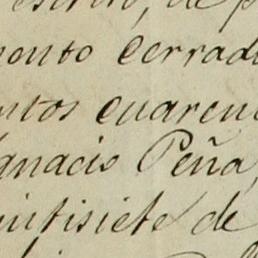 de p
monto cerrado
ntos cuarent
gnacio Peña,
intisiete de